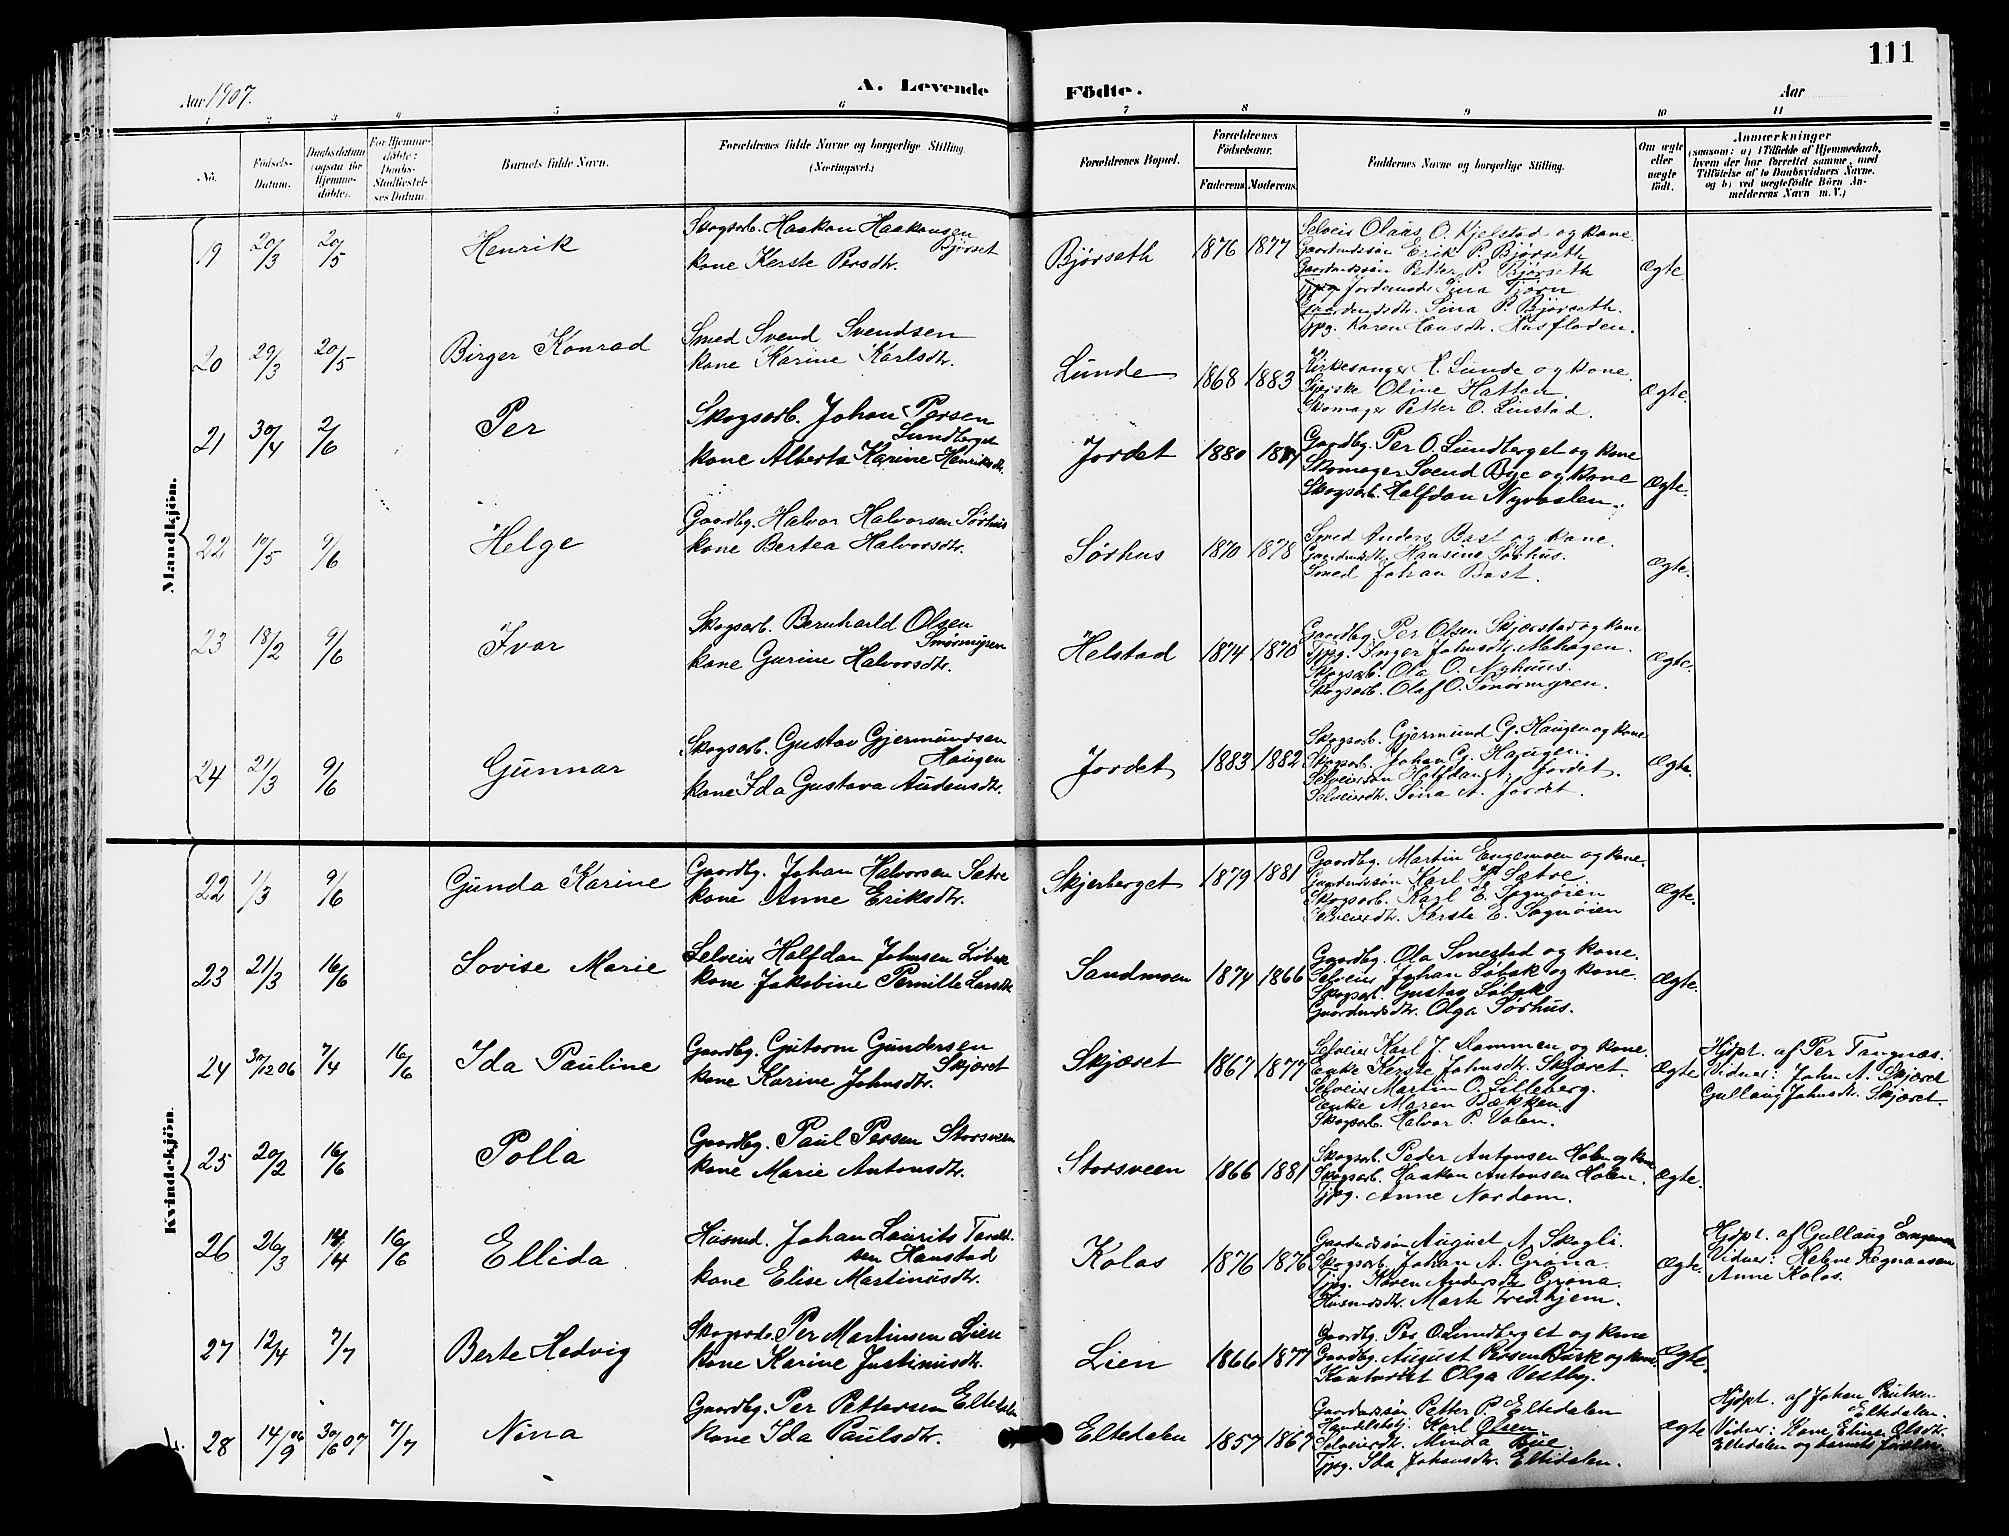 111
Aar 1907.
A. Levende
Födte.
Aar
1 2 3 4 5 6 7 8 9 10 11
No.
Födsels-Datum.
Daabsdatum (ogsaa for Hjemme-döbte).
For Hjemme-döbte: Daabs-Stadfæstel-ses Datum.
Barnets fulde Navn.
Forældrenes fulde Navne og borgerlige Stilling (Næringsvei.)
Forældrenes Bopæl.
Forældrenes Födselsaar.
Faderens. Moderens.
Faddernes Navne og borgerlige Stilling.
Om ægte eller uægte födt.
Anmærkninger
(saasom: a) i Tilfælde af Hjemmedaab, hvem der har forrettet samme, med Tilföielse af to Daabsvidners Navne, og b) ved uægtefödte Börn An-melderens Navn m. V.)
Mandkjön.
19 20/3 20/5 Henrik
Skogsarb. Haakon Haakonsen
Bjørset
kone Kerste Persdtr.
Bjørseth 1876 1877
Selveier Olaus O. Kjelstad og kone
Gaardmdssøn Erik P. Bjørseth
Gaardmdssøn Petter P. Bjørseth
Jordemoder Sina Tjørn
Gaardmdsdtr. Sina P. Bjørseth.
Tjpg. Karen Hansdtr. Husfloden.
Ægte.
20 20/3 20/5 Birger Konrad
Smed Svend Svendsen
kone Karine Karlsdtr.
Lunde 1868 1883
Kirkesanger H. Lunde og kone.
Syerske Oline Hatten.
Skomager Petter O. Linstad.
Ægte.
21 30/4 2/6 Per
Skogsarb. Johan Persen
Lundberget
kone Alberta Karine Henriksdtr.
Jordet 1880
Gaardbg. Per O. Lundberget og kone
Skomager Svend Bye og kone
Skogsarb. Halfdan Nyvoslen.
Ægte.
22 10/5 9/6 Helge
Gaardbg. Halvor Halvorsen Sørhus
kone Bertea Halvorsdtr.
Sørhus 1870 1878
Smed Anders Bast og kone.
Gaardmdsdtr. Hansine Sørhus.
Smed Johan Bast.
Ægte.
23 18/2 9/6 Ivar
Skogsarb. Bernhard Olsen
Smørmyren
kone Gurine Halvorsdtr.
Helstad 1874 1870
Gaardbg. Per Olsen Skjærstad og kone
Tjpg. Inger Johnsdtr. Møhagen.
Skogsarb. Ola O. Nyhuus.
Skogsarb. Olaf O. Smørmyren.
Ægte.
24 21/3 9/6 Gunnar
Skogsarb. Gustav Gjermundsen
Haugen
kone Ida Gustava Audensdtr.
Jordet 1883 1882
Skogsarb. Gjermund G. Haugen og kone
Skogsarb. Johan G. Haugen.
Selveiersøn Halfdan A. Jordet.
Selveierdtr. Sina A. Jordet.
Ægte.
Kvindekjön.
22 1/3 9/6 Gunda Karine
Gaardbg. Johan Halvorsen Sætre
kone Anne Eriksdtr.
Skjerberget 1879 1881
Gaardbg. Martin Engemoen og kone.
Gaardmdssøn Karl H. Sætre.
Skogsarb. Karl E. Sognøien
Selveierdtr. Kerste E. Sognøien
Ægte.
23 21/3 16/6 Lovise Marie
Selveier Halfdan Johnsen Løbak
kone Jakobine Pernille Larsdtr.
Sandmoen 1874 1866
Gaardbg. Ola Smestad og kone.
Selveier Johan Løbak og kone.
Skogsarb. Gustav Løbak
Gaardmdsdtr. Olga Sørhus.
Ægte.
24 30/12 06 7/4 16/6 Ida Pauline
Gaardbg. Gutorm Gundersen
Skjæret
kone Karine Johnsdtr.
Skjæret 1867 1877
Selveier Karl J. Rammen og kone.
Enke Kerste Johnsdtr. Skjæret.
Selveier Martin O. Lilleberg.
Enke Maren Bækken.
Skogsarb. Halvor P. Volen.
Ægte
Hjdpt. af Per Tangnæs.
Vidner: Johan A. Skjæret
Gullaug Johnsdtr. Skjæret.
25 20/2 16/6 Polla
Gaardbg. Paul Persen Storsveen
kone Marie Antonsdtr.
Storsveen 1866 1881
Skogsarb. Peder Antonsen Holen og kone
Skogsarb. Haakon Antonsen Holen.
Tjpg. Anne Nordom.
Ægte.
26 26/3 14/4 16/6 Ellida
Husmd. Johan Laurits Torvald-
sen Hanstad
kone Elise Martinusdtr.
Kolos 1876 1876
Gaardmdssøn August A. Skogli.
Skogsarb. Johan A. Grøna.
Tjpg. Karen Andersdtr. Grøna.
Husmdsdtr. Marth Tredhjem.
Ægte.
Hjdpt. af Gullaug Engemoen
Vidner: Helene Regnaasen
Anne Kolos.
27 12/4 7/7 Berte Hedvig
Skogsarb. Per Martinsen Lien
kone Karine Justinusdtr.
Lien 1866 1877
Gaardbg. Per O. Lundberget og kone
Gaardbg. August Persen Burk og kone.
Olga Vestby.
Ægte.
28 14/9 06 30/6 07 7/7 Nina
Gaardbg. Per Pettersen Eltedalen
kone Ida Paulsdtr.
Eltedalen 1857 1867
Gaardmdssøn Petter P. Eltedalen
Handelsbtj. Karl Olsen
Selveierdtr. Minda Bue
Tjpg. Ida Johansdtr. Eltedalen.
Ægte
Hjdpt. af Johan Paulsen
Eltedalen.
Vidner: Kone Eline Olsdtr.
Eltedalen og barnets